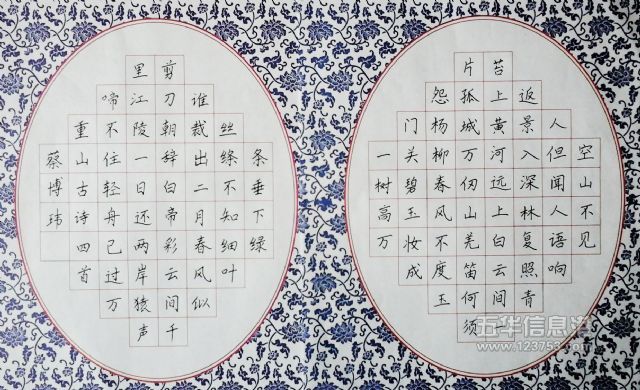 空山不见
人但闻人语响
返景入深林复照青
苔上黄河远上白云间一
片孤城万仞山羌笛何须
怨杨柳春风不度玉
门关碧玉妆成
一树高万
条垂下绿
丝绦不知细叶
谁裁出二月春风似
剪刀朝辞白帝彩云间千
里江陵一日还两岸猿声
啼不住轻舟已过万
重山古诗四首
蔡博玮
五华信息港
www.123753.com